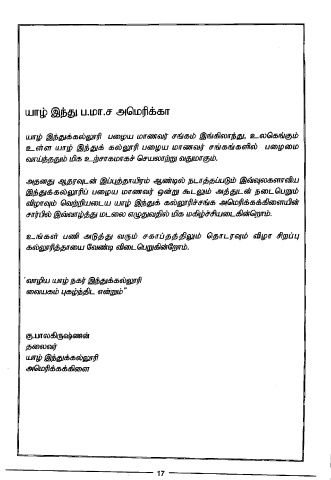 யாழ் இந்து ப.மா.ச அமெரிக்கா
யாழ் இந்துக்கல்லூரி பழைய மாணவர் சங்கம் இங்கிலாந்து, உலகெங்கும்
உள்ள யாழ் இந்துக் கல்லூரி பழைய மாணவர் சங்கங்களில் பழைமை
வாய்ந்ததும் மிக உற்சாகமாகச் செயலாற்று வதுமாகும்.
அதனது ஆதரவுடன் இப்புத்தாயிரம் ஆண்டில் நடாத்தப்படும் இவ்வுலகளாவிய
இந்துக்கல்லூரிப் பழைய மாணவர் ஒன்று கூடலும் அத்துடன் நடைபெறும்
விழாவும் வெற்றியடைய யாழ் இந்துக் கல்லூரிச்சங்க அமெரிக்கக்கிளையின்
சார்பில் இவ்வாழ்த்து மடலை எழுதுவதில் மிக மகிழ்ச்சியடைகின்றோம்.
உங்கள் பணி அடுத்து வரும் சகாப்தத்திலும் தொடரவும் விழா சிறப்பு
கல்லூரித்தாயை வேண்டி விடைபெறுகின்றோம்.
"வாழிய யாழ் நகர் இந்துக்கல்லூரி
வையகம் புகழ்ந்திட என்றும்"
கு.பாலகிருஷ்ணன்
தலைவர்
யாழ் இந்துக்கல்லூரி
அமெரிக்கக்கிளை
17